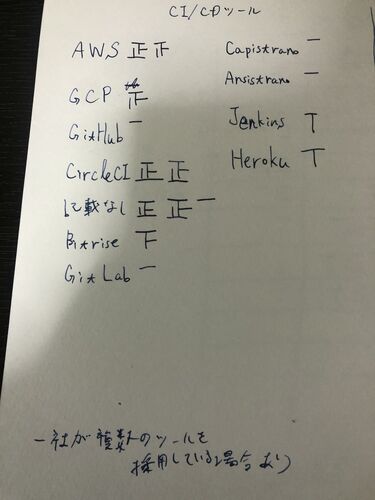 CI/CDツール
AWS 正正
GCP 正
GitHub 一
CircleCI 正 正
記載なし 正 正 一
Bitrise 下
GitLab 一
Capistrano 一
Ansistrano 一
Jenkins T
Heroku T
一社が複数のツールを
採用している場合あり